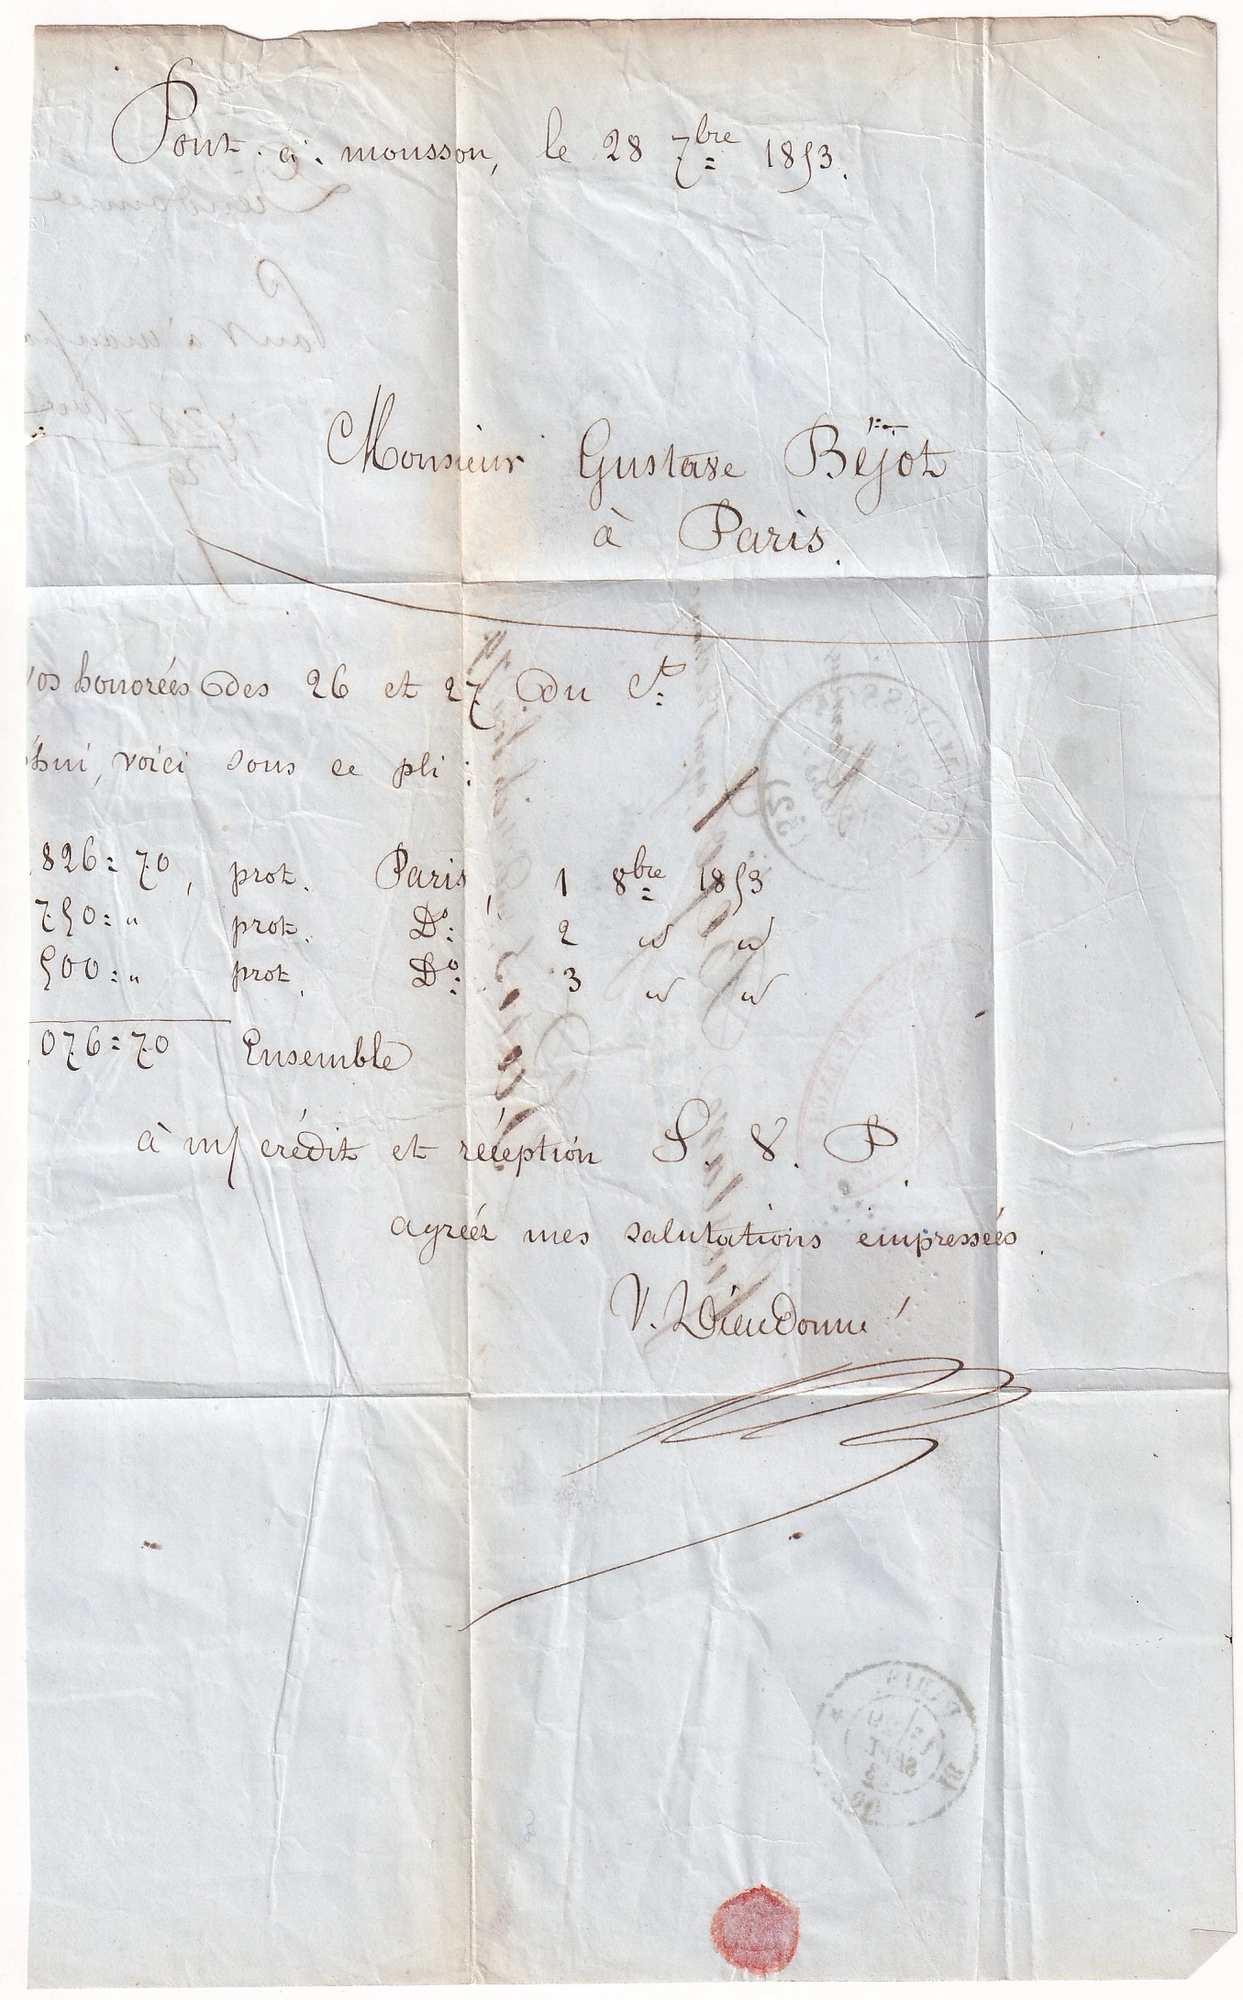 Pont-à-mousson, le 28 7bre 1853.
Monsieur Gustave Béjot
à Paris.
vos honorées des 26 et 27 du Ct
d'hui, voici sous ce pli :
826=70, prot. Paris, 1 8bre 1853
750=" prot. Do: 2 " "
500=" prot. Do: 3 " "
076=70 Ensemble
à m/ crédit et réception S. V. P.
agréez mes salutations empressées.
V. Dieudonné